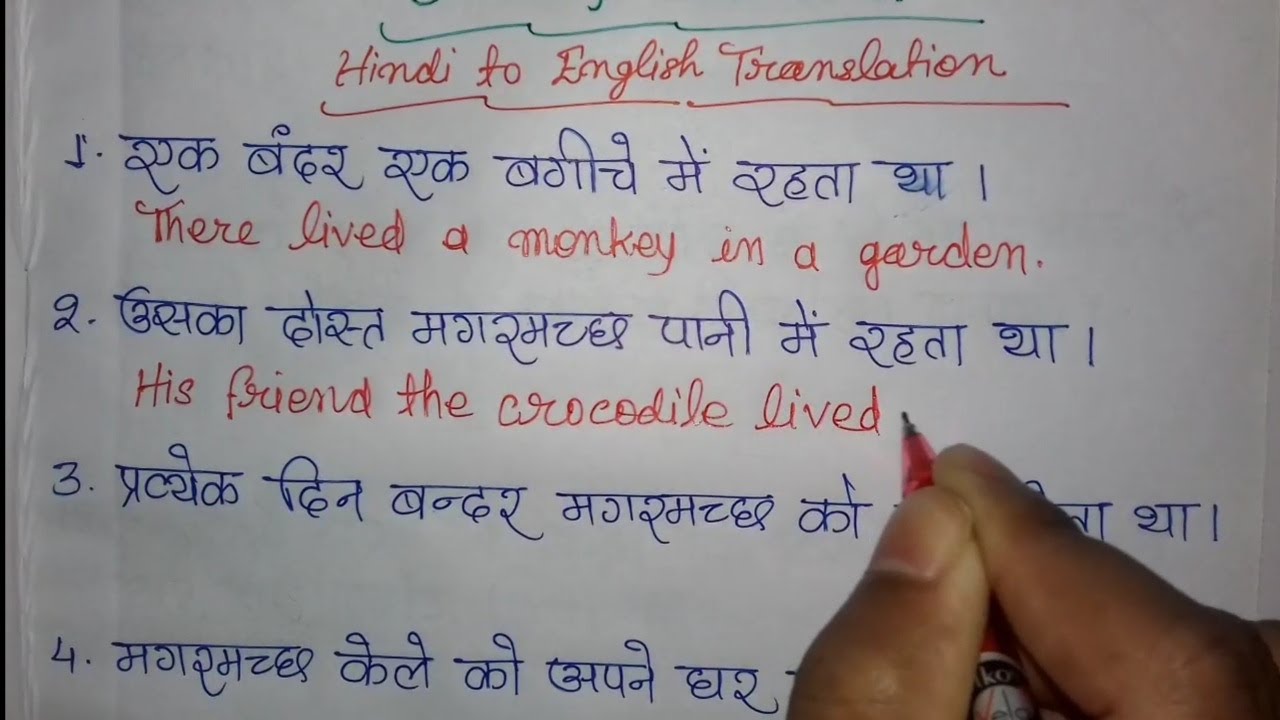 Hindi to English Translation
1. एक बंदर एक बगीचे में रहता था।
There lived a monkey in a garden.
2. उसका दोस्त मगरमच्छ पानी में रहता था।
His friend the crocodile lived
3. प्रत्येक दिन बन्दर मगरमच्छ को था।
4. मगरमच्छ केले को अपने घर